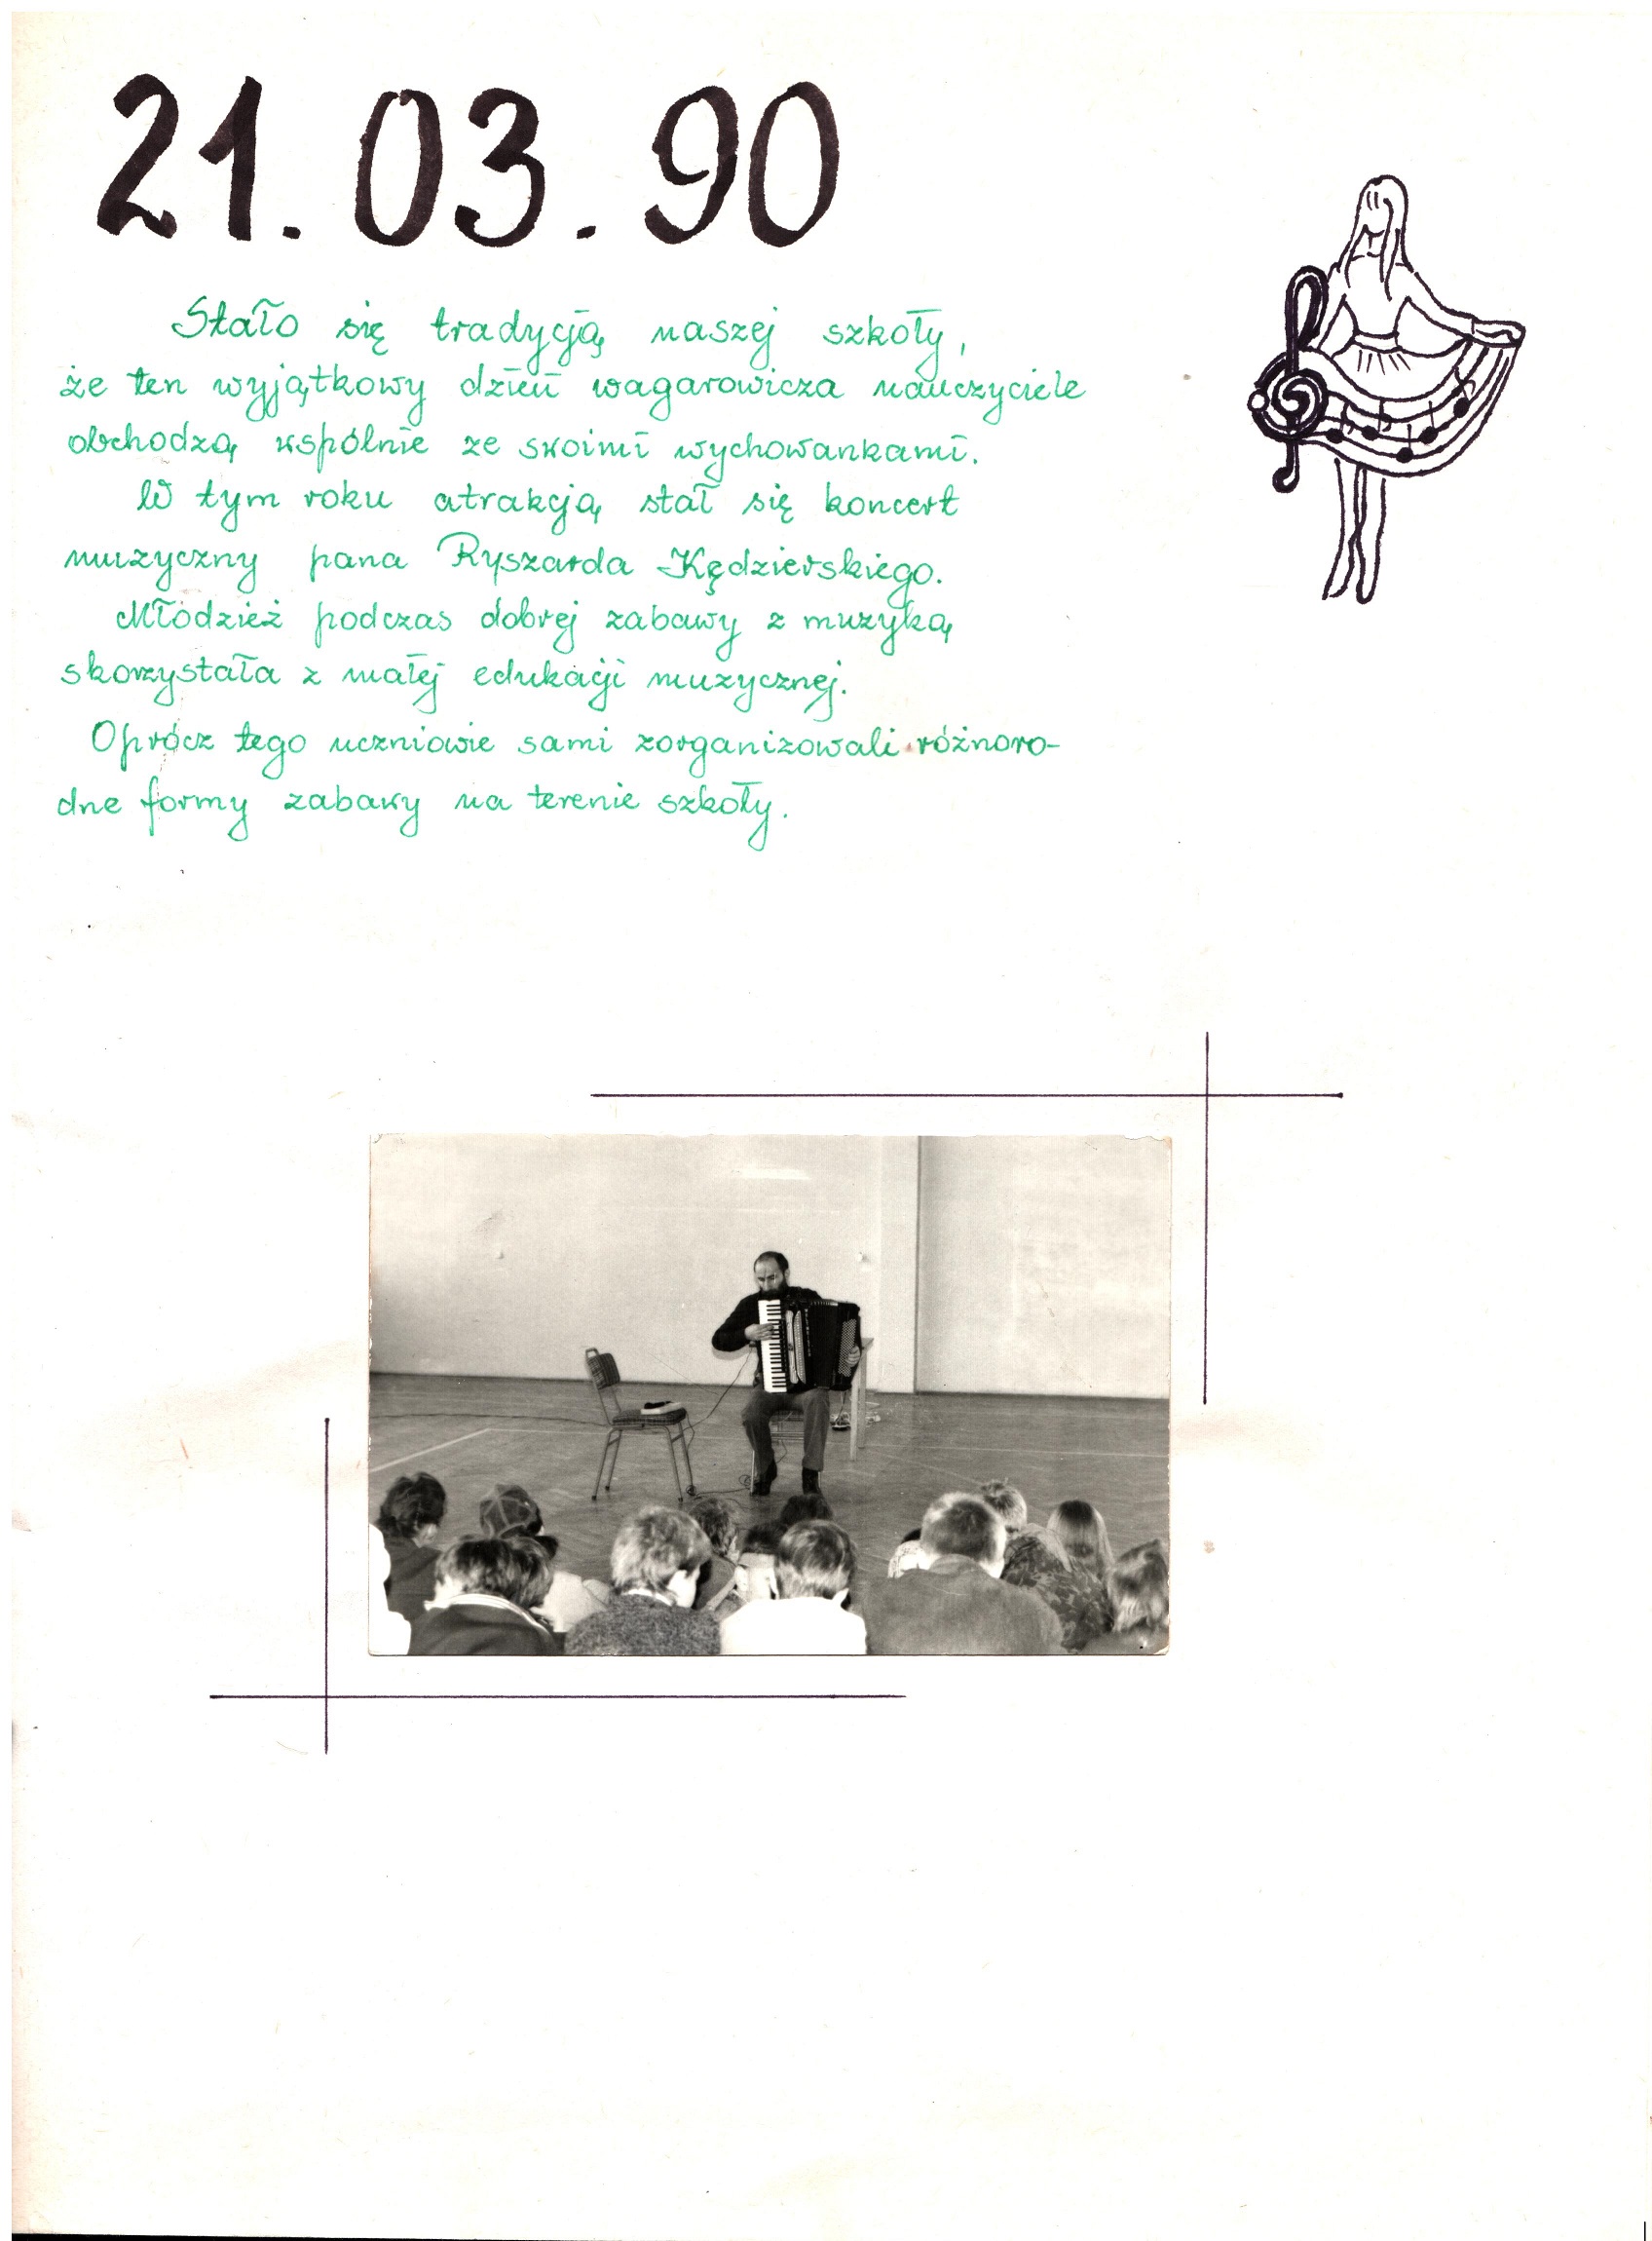 21.03.90
Stało się tradycją naszej szkoły,
że ten wyjątkowy dzień wagarowicza nauczyciele
obchodzą wspólnie ze swoimi wychowankami.
W tym roku atrakcją stał się koncert
muzyczny pana Ryszarda Kędzierskiego.
Młodzież podczas dobrej zabawy z muzyką
skorzystała z małej edukacji muzycznej.
Oprócz tego uczniowie sami zorganizowali różnoro-
dne formy zabawy na terenie szkoły.